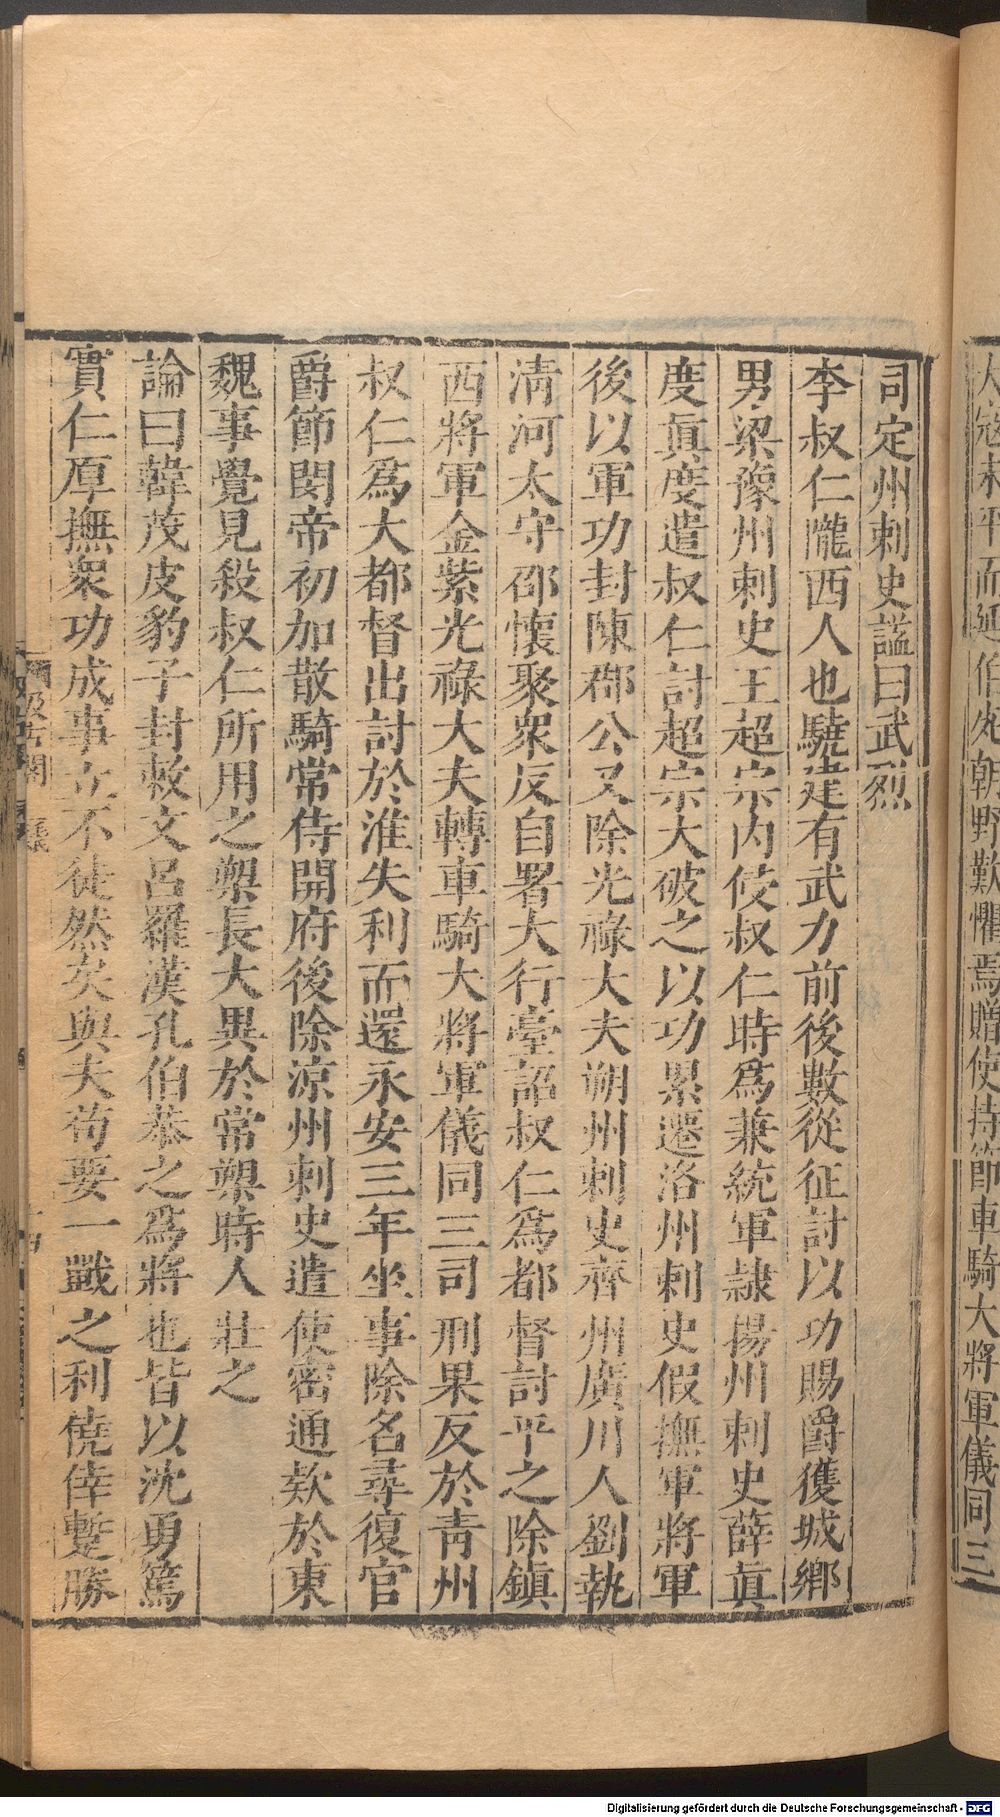 大將軍儀同三
司定州刺史諡曰武烈
李叔仁隴西人也驍建有武力前後數從征討以功賜爵獲城鄉
男梁豫州刺史王超宗內佼叔仁時爲兼統軍隷揚州刺史薛眞
度眞度遣叔仁討超宗大破之以功累遷洛州刺史假撫軍將軍
後以軍功封陳郡公又除光祿大夫朔州刺史齊州廣川人劉執
清河太守邵懷聚衆反自署大行臺詔叔仁爲都督討平之除鎮
西將軍金紫光祿大夫轉車騎大將軍儀同三司刑杲反於靑州
叔仁爲大都督出討於淮失利而還永安三年坐事除名尋復官
爵節閔帝初加散騎常侍開府後除涼州刺史遣使密通欵於東
魏事覺見殺叔仁所用之槊長大異於常槊時人壯之
論曰韓茂皮豹子封敕文呂羅漢孔伯恭之爲將也皆以沈勇篤
實仁厚撫衆功成事立不徒然矣與夫苟要一戰之利僥倖蹔勝
Digitalisierung gefördert durch die Deutsche Forschungsgemeinschaft - DFG